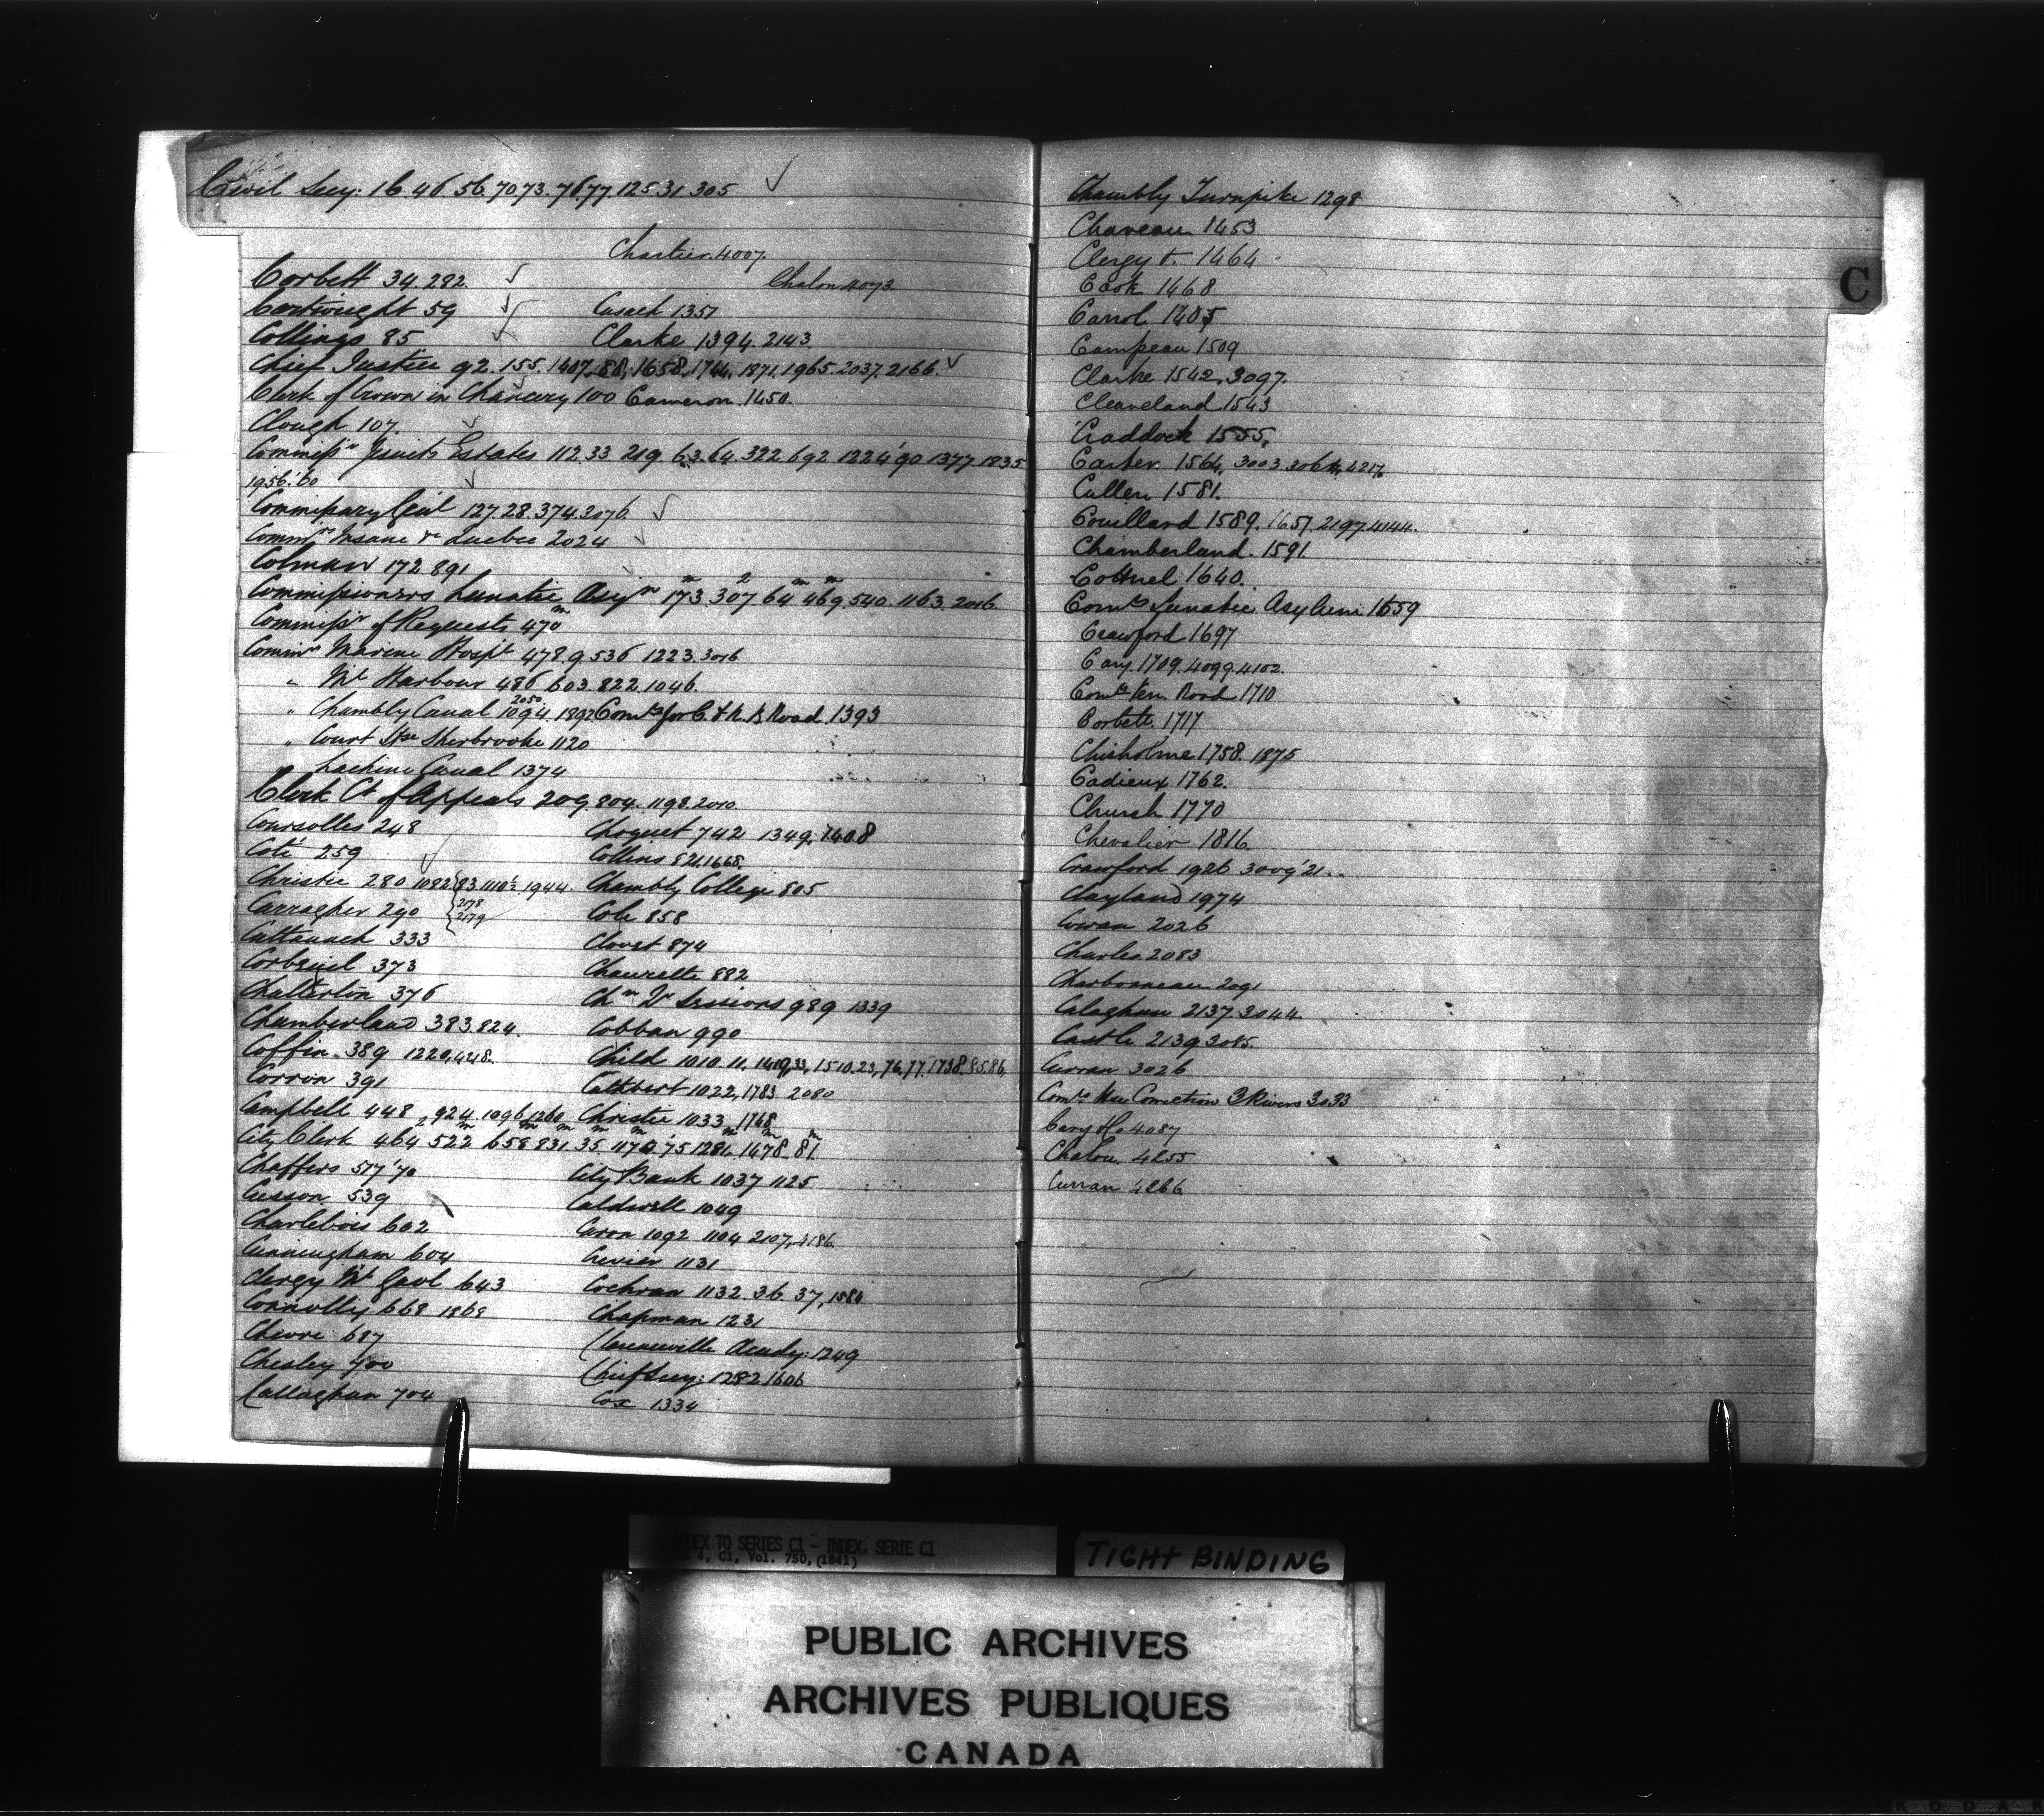 Civil Secy: 16.46.56.70.73.76.77.125.31.305
Chartier 4007.
Corbett 34.292.
Chalon 4073.
Cartwright 59
Cusack 1357
Collings 85
Clarke 1394.2143
Chief Justice 92.155.1407.88.1658.1744.1871.1965.2037.2166.
Clerk of Crown in Chancery 100 Cameron 1450.
Clough 107.
Commissrs Jesuits Estates 112.33 219.63.64.322.692.1224'90 1377 1835
1956'.60
Commissary Genl 127.28.374.2076.
Commrs Insane &c Quebec 2024
Colman 172.891
Commissioners Lunatic Asym 173.307.64.469.540.1163.2016.
Commissr of Requests 470
Commrs Marine Hospl 478.9.536 1223.3016
" Ml Harbour 486.603.822.1046.
" Chambly Canal 1094.2050.1892 Comrs for C. & R. B Road 1393
" Court Hse Sherbrooke 1120
" Lachine Canal 1374
Clerk Ct of Appeals 209.804.1198.2010
Coursolles 248
Choquet 742 1349.1408
Coté 259
Collins 821.1668.
Christie 280 1082 83 1110½ 1944
2178
2179
Chambly College 805
Carragher 290
Cole 858
Cattanach 333
Clouet 874
Corbeuil 373
Chaurette 882
Chatterton 376
Chn Qr Sessions 989 1339
Chamberland 383.824.
Cobban 990
Coffin 389 1220,4218.
Child 1010.11.1419,33,1510.23,76.77.1738.85.86,
Corron 391
Cuthbert 1022,1783 2080
Campbell 448 924.1096,1260
Christie 1033 1768
City Clerk 464 522 658 831 35 1170'75 1281 1478 81
Chaffers 517'70
City Bank 1037 1125
Cusson 539
Caldwell 1049
Charlebois 602
Caron 1092 1104 2107,4186.
Cunningham 604
Crevier 1131
Clergy Ml Gaol 643
Cochran 1132.36.37,1584
Connolly 668 1868
Chapman 1231
Chevre 687
Clarenceville Acady: 1249
Chesley 700
Chief Secy: 1282 1606
Callaghan 704
Cox 1334
Chambly Turnpike 1298
C
Chaveau 1453
Clergy &. 1464
Cook 1468
Carrol 1405
Campeau 1509
Clarke 1542,3097.
Cleaveland 1543
Craddock 1555,
Carter 1564,3003.3064,4217.
Cullen 1581.
Couillard 1589.1657.2197.4144.
Chamberland. 1591.
Cottrel 1640.
Comrs Lunatic Asylum 1659
Crawford 1697
Cary. 1709.4099.4102.
Comrs Ken. Road 1710
Corbett 1717
Chisholme 1758. 1875
Cadieux 1762.
Church 1770
Chevalier 1816.
Crawford 1926 3009'21..
Clayland 1974
Cowan 2026
Charles 2083
Charbonneau 2091
Calaghan 2137.3044.
Castle 2139 3085.
Curran 3026
Comrs Hse Correction 3 Rivers 3033
Cary H. 4087
Chalou. 4255
Curran 4266
INDEX TO SERIES C1 - INDEX, SERIE C1
4, C1, Vol. 750, (1841)
TIGHT BINDING
PUBLIC ARCHIVES
ARCHIVES PUBLIQUES
CANADA